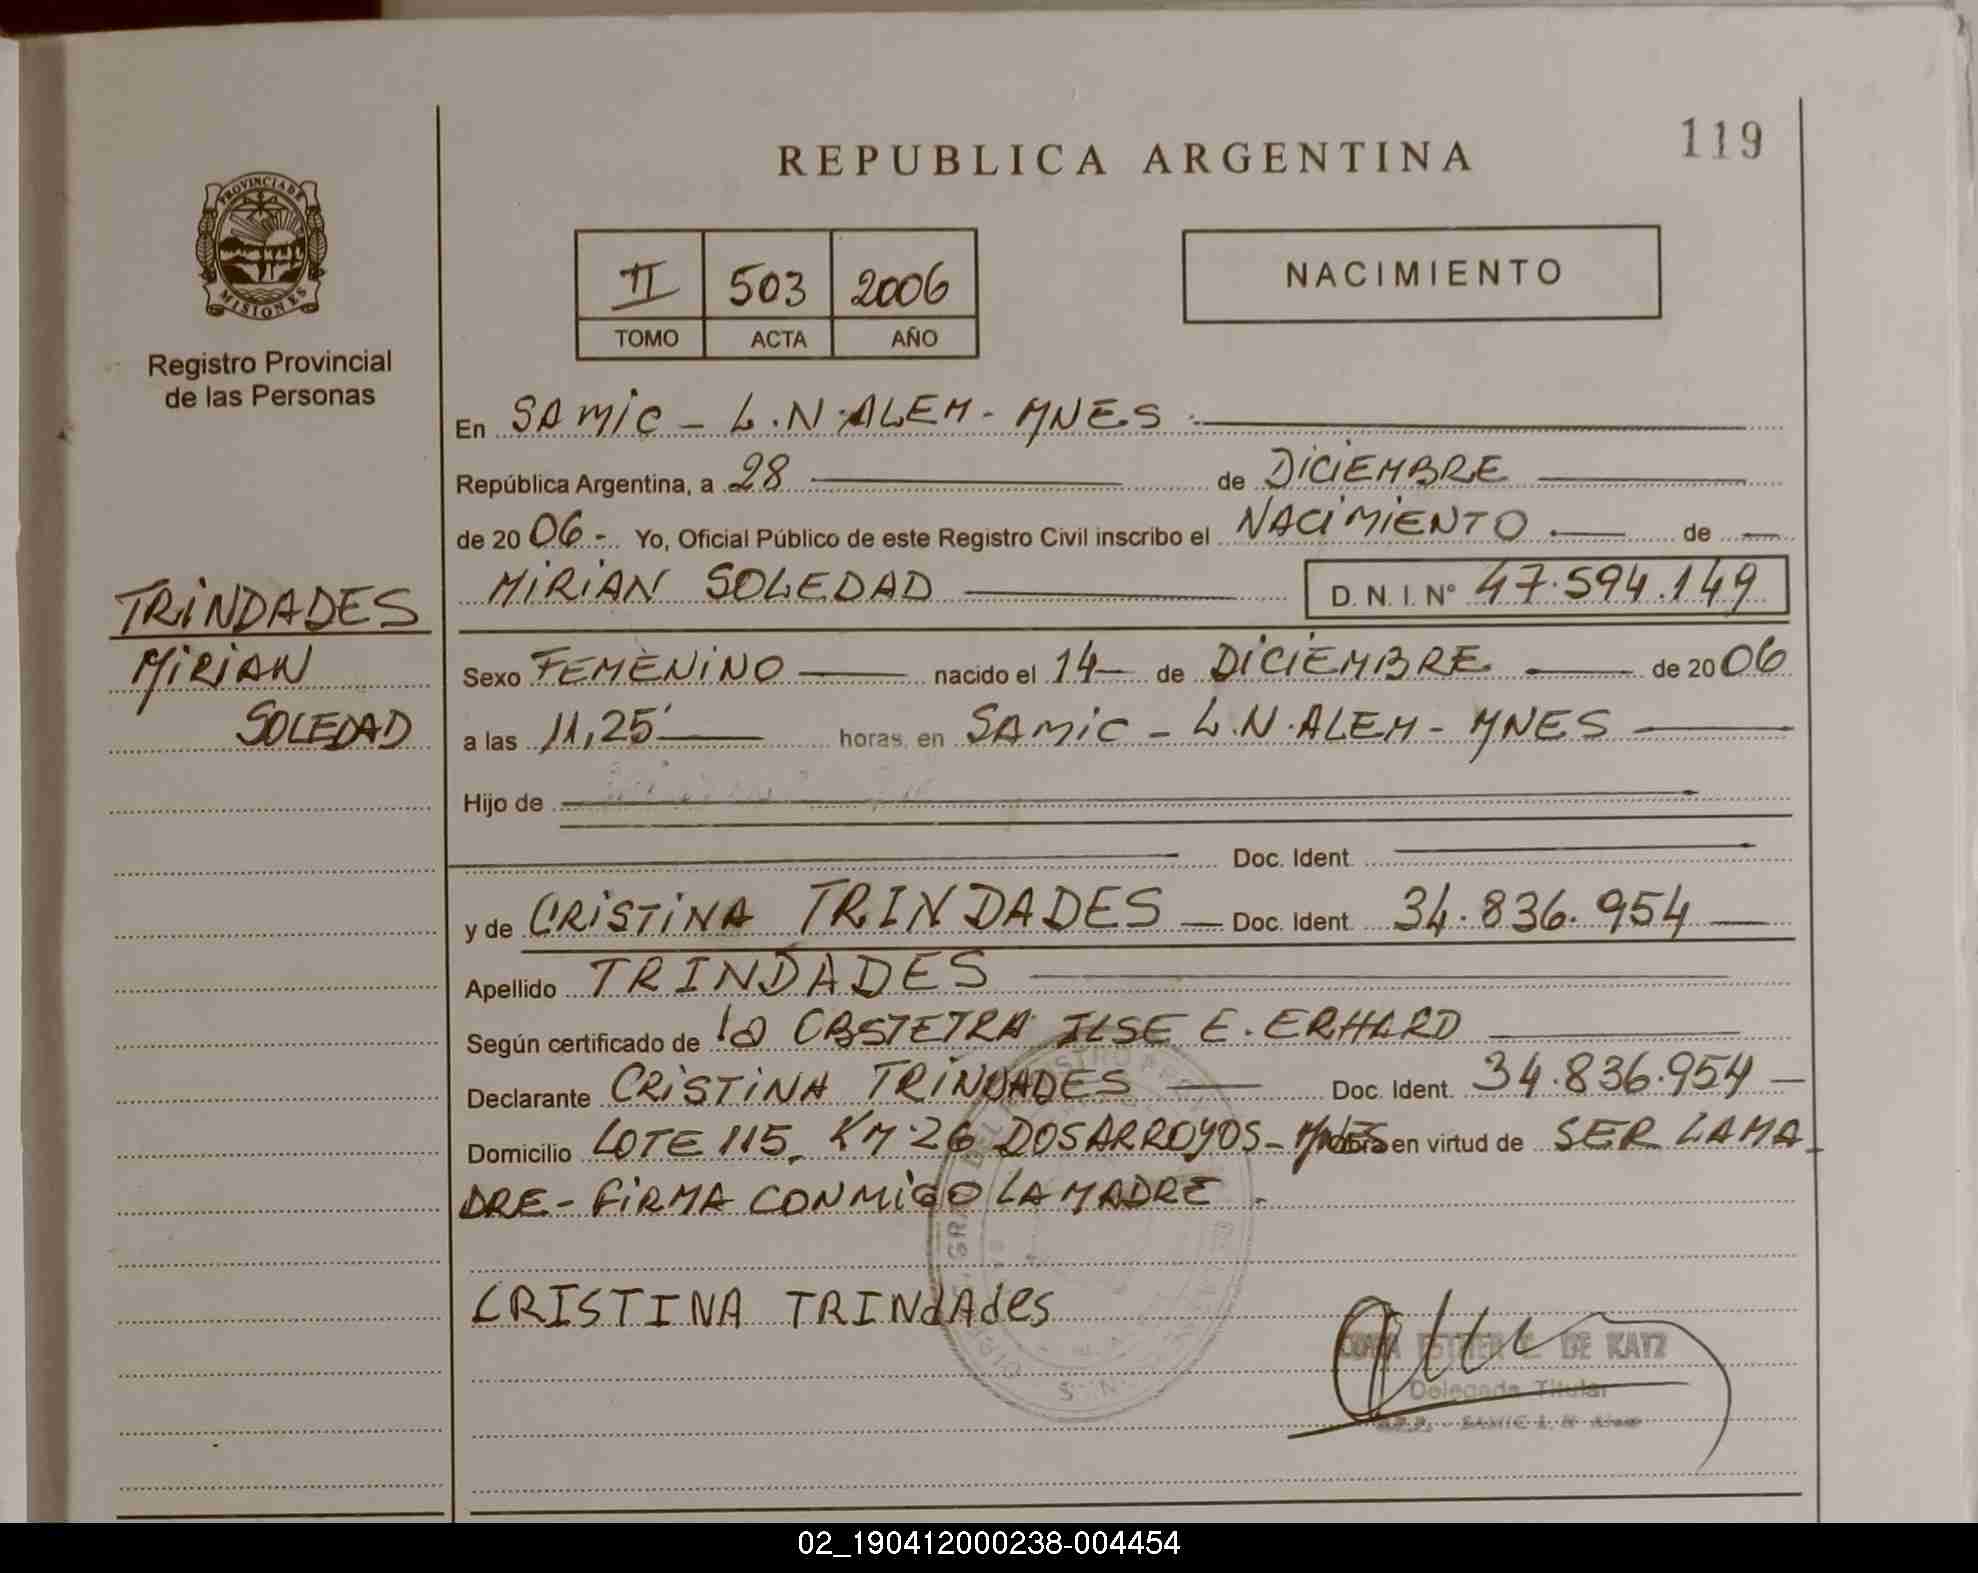 119
REPUBLICA ARGENTINA
PROVINCIA DE
MISIONES
Registro Provincial
de las Personas
II 503 2006
TOMO ACTA AÑO
NACIMIENTO
En SAMIC - L.N.ALEM - MNES
República Argentina, a 28 de DICIEMBRE
de 2006.- Yo, Oficial Público de este Registro Civil inscribo el NACIMIENTO de
MIRIAN SOLEDAD D.N.I. N° 47.594.149
TRINDADES
MIRIAN
SOLEDAD
Sexo FEMENINO nacido el 14 de DICIEMBRE de 2006
a las 11,25' horas, en SAMIC - L.N.ALEM - MNES
Hijo de
Doc. Ident.
y de CRISTINA TRINDADES Doc. Ident. 34.836.954
Apellido TRINDADES
Según certificado de la OBSTETRA ILSE E. ERHARD
Declarante CRISTINA TRINDADES Doc. Ident. 34.836.954
Domicilio LOTE 115. KM.26 DOS ARROYOS - MNES Obra en virtud de SER LA MA
DRE - FIRMA CONMIGO LA MADRE.
CRISTINA TRINdAdes
ESTHER DE KATZ
Delegada Titular
SAMIC L. N. Alem
02_190412000238-004454